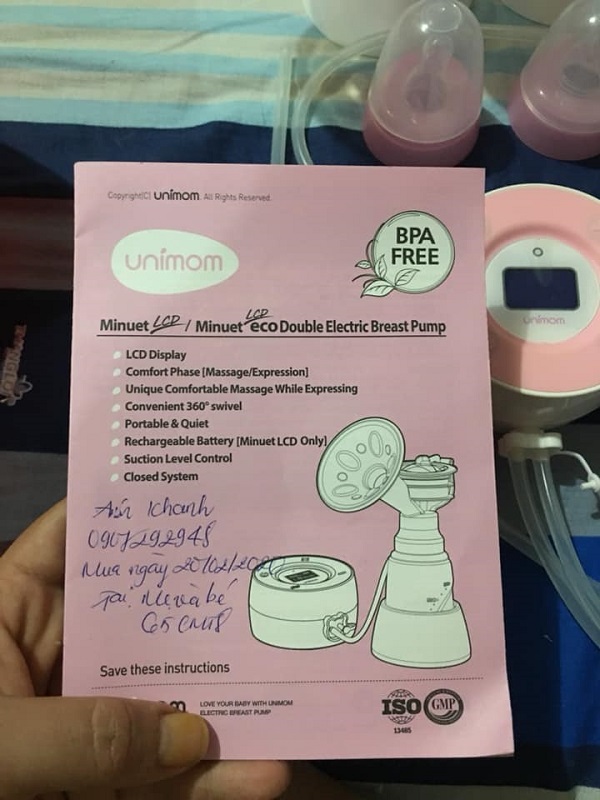 Copyright(C) unimom. All Rights Reserved.
unimom
BPA
FREE
Minuet LCD / Minuet LCD eco Double Electric Breast Pump
LCD Display
Comfort Phase [Massage/Expression]
Unique Comfortable Massage While Expressing
Convenient 360° swivel
Portable & Quiet
Rechargeable Battery [Minuet LCD Only]
Suction Level Control
Closed System
Khanh
Mua ngày 20/02/2020
Tại: Mẹ và bé
Save these instructions
LOVE YOUR BABY WITH UNIMOM
ELECTRIC BREAST PUMP
ISO
13485
GMP
unimom